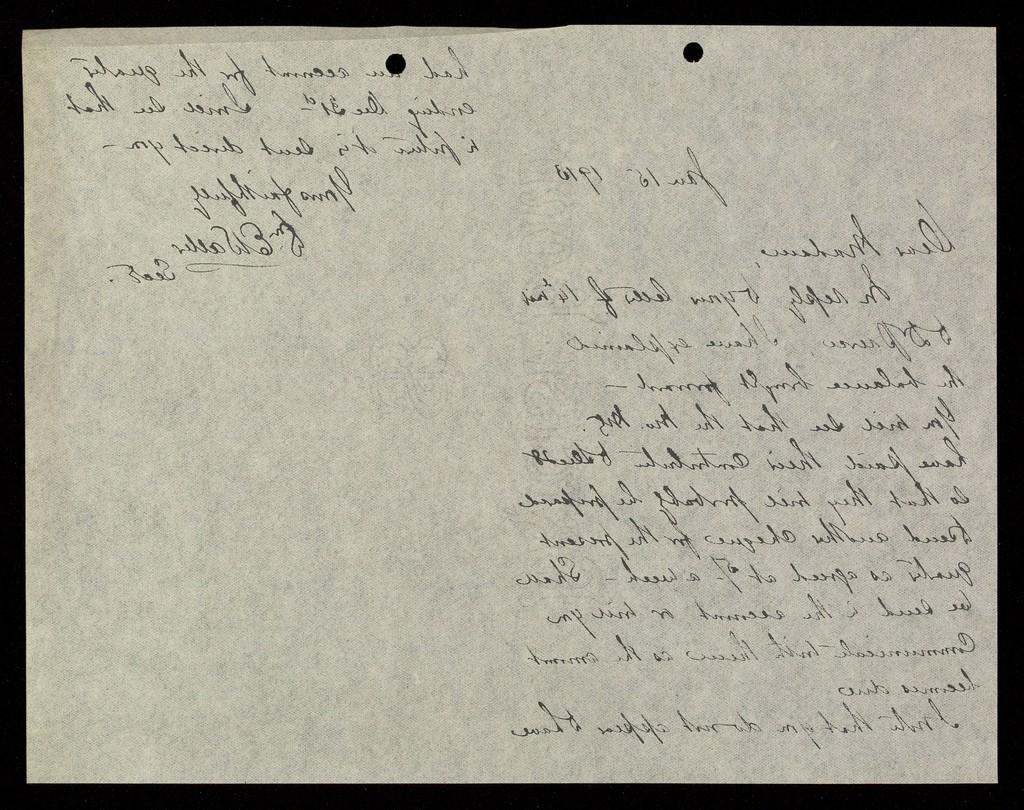 Jan 15 1910
Dear Madam,
In reply to your letter of 14th inst
I have explained
the balance brought forward —
You will see that the
have paid their contribution to Dec 28
so that they will probably be prepared
to send another cheque for the present
quarter as agreed at 7/- a week — Shall
we send in the account or will you
communicate with them as the amount
becomes due
I note that you do not appear to have
had an account for the quarter
ending Dec 31st — I will see that
in future it is sent direct you —
Yours faithfully
E Waller
Secy.